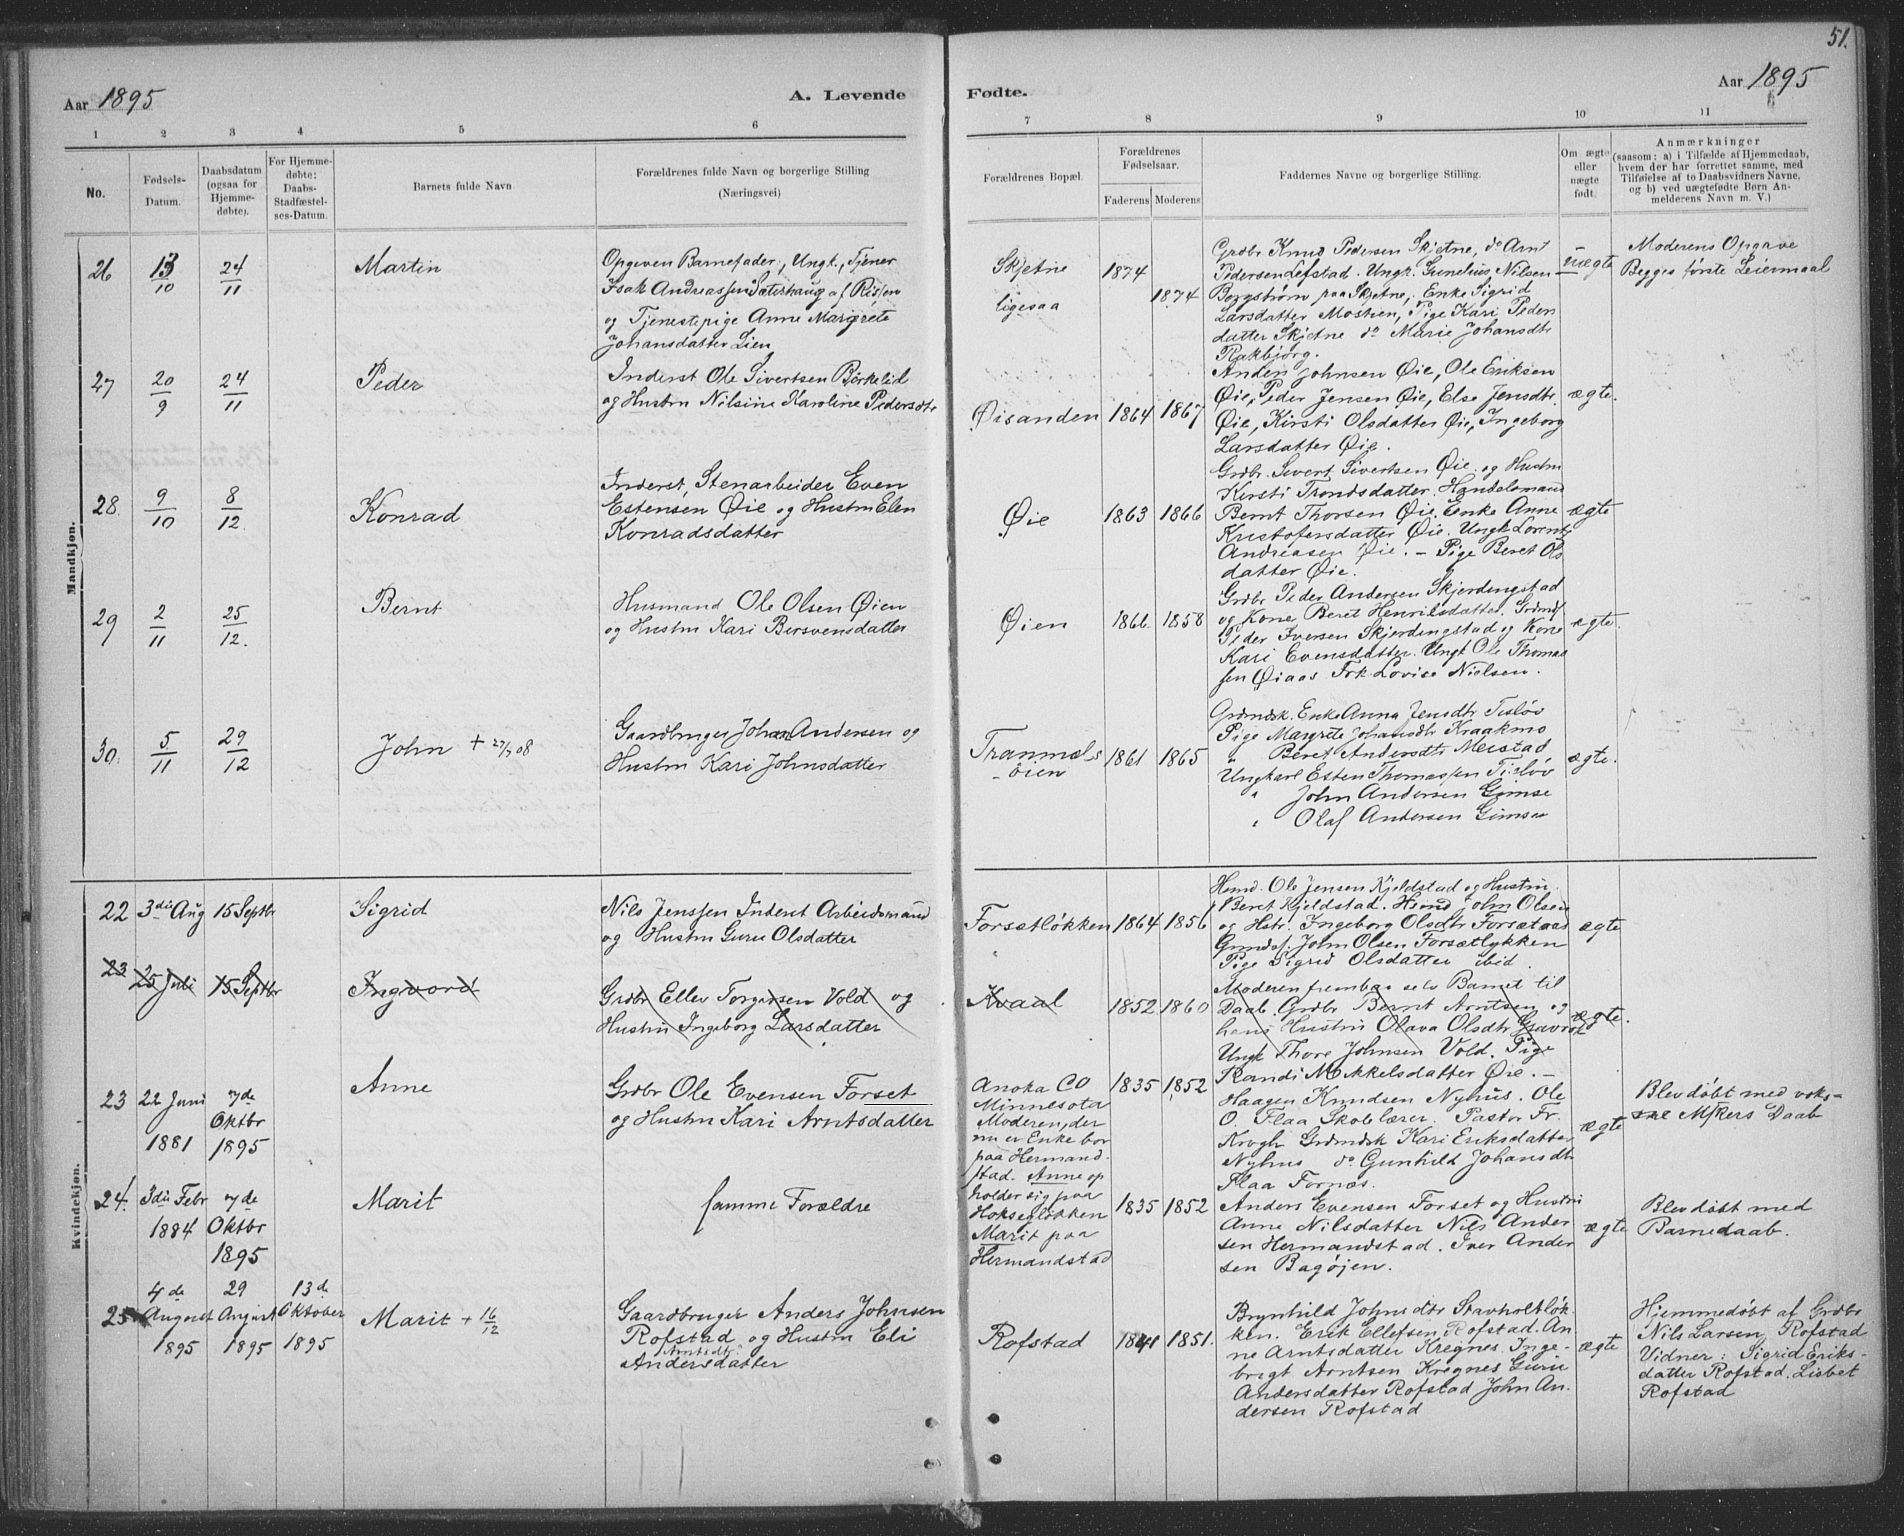 51.
Aar 1895
A. Levende
Fødte.
Aar 1895
1
2
3
4
5
6
7
8
9
10
11
No.
Fødsels-
Datum.
Daabsdatum
(ogsaa for
Hjemme-
døbte).
For Hjemme-
døbte:
Daabs-
Stadfæstel-
ses-Datum.
Barnets fulde Navn
Forældrenes fulde Navn og borgerlige Stilling
(Næringsvei)
Forældrenes Bopæl.
Forældrenes
Fødselsaar.
Faderens
Moderens
Faddernes Navne og borgerlige Stilling.
Om ægte
eller
uægte
født.
Anmærkninger
(saasom: a) i Tilfælde af Hjemmedaab,
hvem der har forrettet samme, med
Tilføielse af to Daabsvidners Navne,
og b) ved uægtefødte Børn An-
melderens Navn m. V.)
Mandkjøn.
26
13/10
24/11
Martin
Opgiven Barnefader, Ungk., Tjener
Isak Andreassen Sæterhaug af Rissen
og Tjenestepige Anne Margrete
Johansdatter Lien
Skjetne
ligesaa
1874
1874
Grdbr Knud Pedersen Skjetne, do Arnt
Pedersen Lefstad. Ungk. Gunelius Nilsen
Borgstrøm paa Skjetne, Enke Sigrid
Larsdatter Mostien, Pige Kari Peders
datter Skjetne do Marie Johansdtr
Rakbjørg.
uægte
Moderens Opgave
Begges første Leiermaal
27
20/9
24/11
Peder
Inderst Ole Sivertsen Børkelid
og Hustru Nilsine Karoline Pedersdtr
Øisanden
1864
1867
Anders Johnsen Øie, Ole Eriksen
Øie, Peder Jensen Øie, Else Jensdtr
Øie, Kirsti Olsdatter Øie, Ingeborg
Larsdatter Øie.
ægte.
28.
9/10
8/12.
Konrad
Inderst, Stenarbeider Even
Estensen Øie og Hustru Elen
Konradsdatter
Øie
1863
1866
Grdbr. Sivert Sivertsen Øie og Hustru
Kirsti Trondsdatter. Handelsmand
Bernt Thorsen Øie. Enke Anne
Kristofersdatter Øie. Ungk Lorents
Andreasen Øie. – Pige Beret Ols
datter Øie.
ægte
29
2/11
25/12.
Bernt
Husmand Ole Olsen Øien
og Hustru Kari Bersvensdatter
Øien
1866.
1858
Grdbr Peder Andersen Skjerdingstad
og Kone Beret Henriksdatter. Grdmd
Peder Iversen Skjerdingstad og Kone
Kari Evensdatter. Ungk Ole Thomas
sen Øiaas Frk. Lovise Nielsen.
ægte.
30.
5/11
29/12
John + 27/7 08
Gaardbruger Johan Andersen og
Hustru Kari Johnsdatter
Tranmæls
øien
1861
1865
Grdmdsk. Enke Anna Jensdtr Tesløv
Pige Margrete Johansdtr Kraakmo
" Beret Andersdtr Meistad
Ungkarl Esten Thomassen Tesløv
" John Andersen Gimse
" Olaf Andersen Gimse
ægte.
Kvindekjøn.
22
3die Aug
15 Septbr
Sigrid
Nils Jenssen Inderst Arbeidsmand
og Hustru Guru Olsdatter
Forsetløkken
1864
1856
Hsmd. Ole Jensen Kjeldstad og Hustru
Beret Kjeldstad. Hsmd John Olsen
og Hstr. Ingeborg Olsdtr Forsetaas
Grmds. John Olsen Forsætløkken
Pige Sigrid Olsdatter ibid.
ægte
23
25 Juli
15 Septbr
Ingvord
Grdbr Ellev Torgersen Vold og
Hustru Ingeborg Larsdatter
Kvaal
1852
1860
Moderen frembar selv Barnet til
Daab. Grdbr Bernt Arntsen og
hans Hustru Olava Olsdtr Gravrok
Ungk Thore Johnsen Vold. Pige
Randi Mikkelsdatter Øie. –
ægte.
23
22 Juni
1881
7de
Oktbr
1895
Anne
Grdbr Ole Evensen Forset
og Hustru Kari Arntsdatter
Anoka Co
Minnesota
Moderen, der
nu er Enke bor
paa Hermand
stad. Anne op
holder sig paa
Hokseglökken
Marit paa
Hermandstad
1835
1852
Haagen Knudsen Nyhus. Ole
O. Flaa Skolelærer. Pastor Fr.
Krogh Grdmdsk Kari Eriksdatter
Nyhus do Gunhild Johansdtr
Flaa Fornæs.
ægte
Blev døbt med vok-
sne Mskers Daab
24.
3die Febr
1884
7de
Oktbr
1895
Marit
samme Forældre
1835
1852
Anders Evensen Forset og Hustru
Anne Nilsdatter Nils Ander
sen Hermandstad. Iver Ander
sen Bagøien.
ægte
Blev døbt med
Barnedaab.
25
4de
August
1895
29
August
1895
13de
Oktober
1895
Marit + 16/12
Gaardbruger Anders Johnsen
Rofstad og Hustru Eli
Arntsdtr
Andersdatter
Rofstad
1841
1851.
Brynhild Johnsdtr Stavholtløk-
ken. Erik Ellefsen Rofstad. An-
ne Arntsdatter Kregnes. Inge-
brigt Arntsen Kregnes Guru
Andersdatter Rofstad John An-
dersen Rofstad
ægte
Hjemmedøbt af Grdbr
Nils Larsen Rofstad
Vidner: Sigrid Eriks-
datter Rofstad. Lisbet
Rofstad